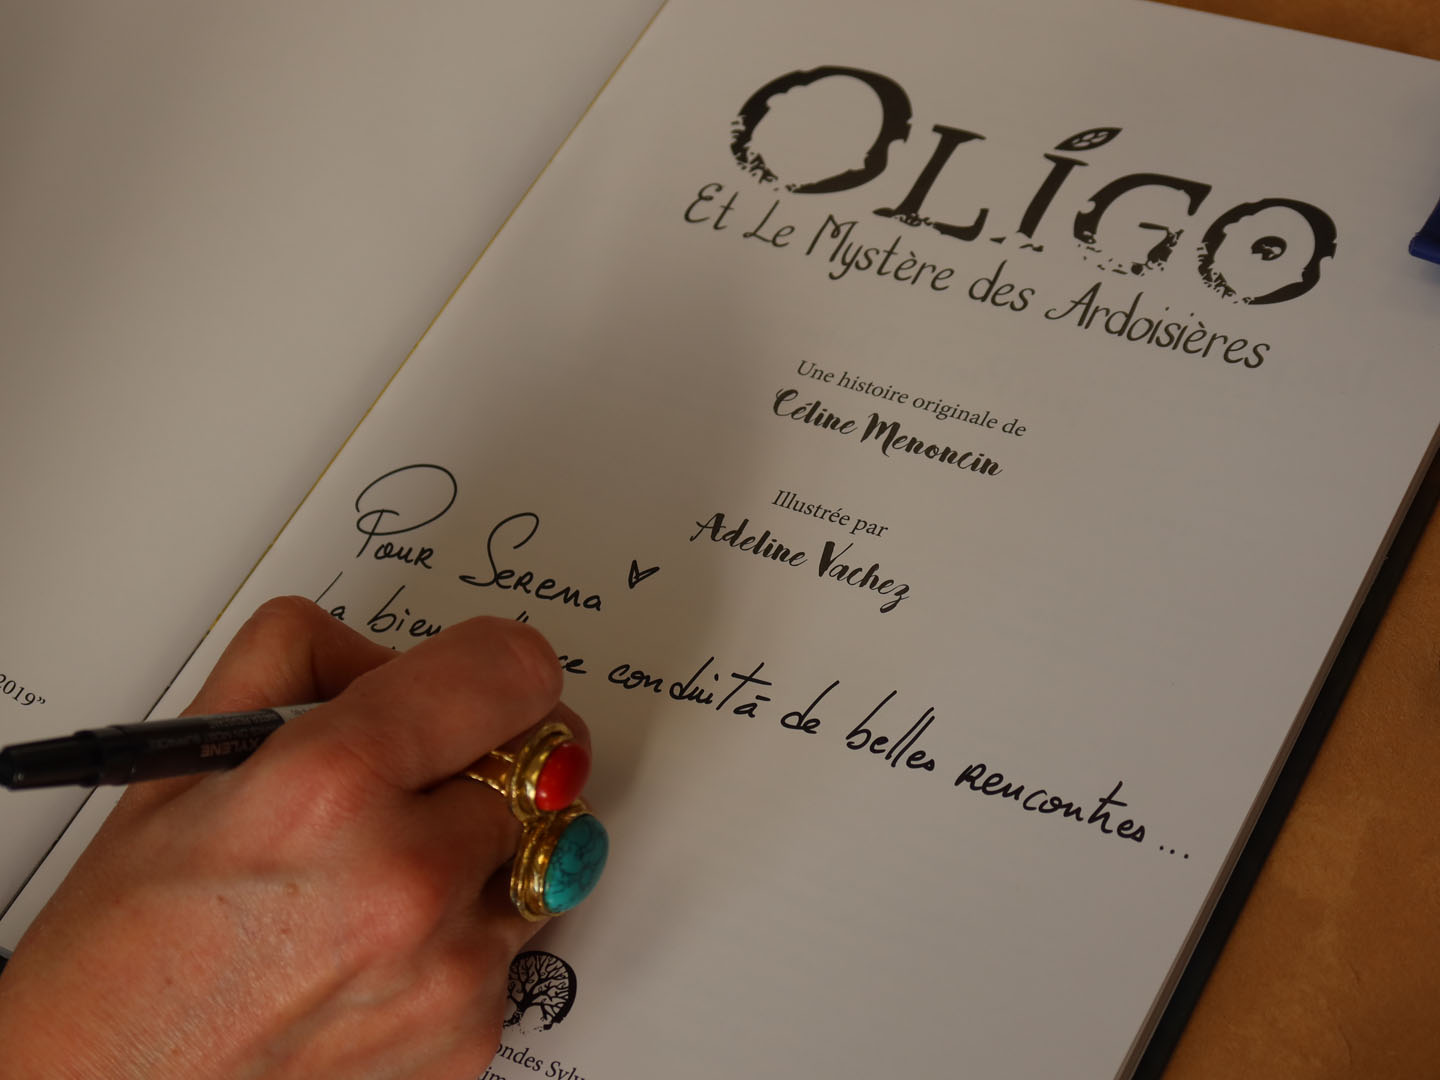 OLIGO
Et Le Mystère des Ardoisières
Une histoire originale de
Céline Menoncin
Illustrée par
Adeline Vachez
Pour Serena
La conduit à de belles rencontres...
2019”
XYLENE